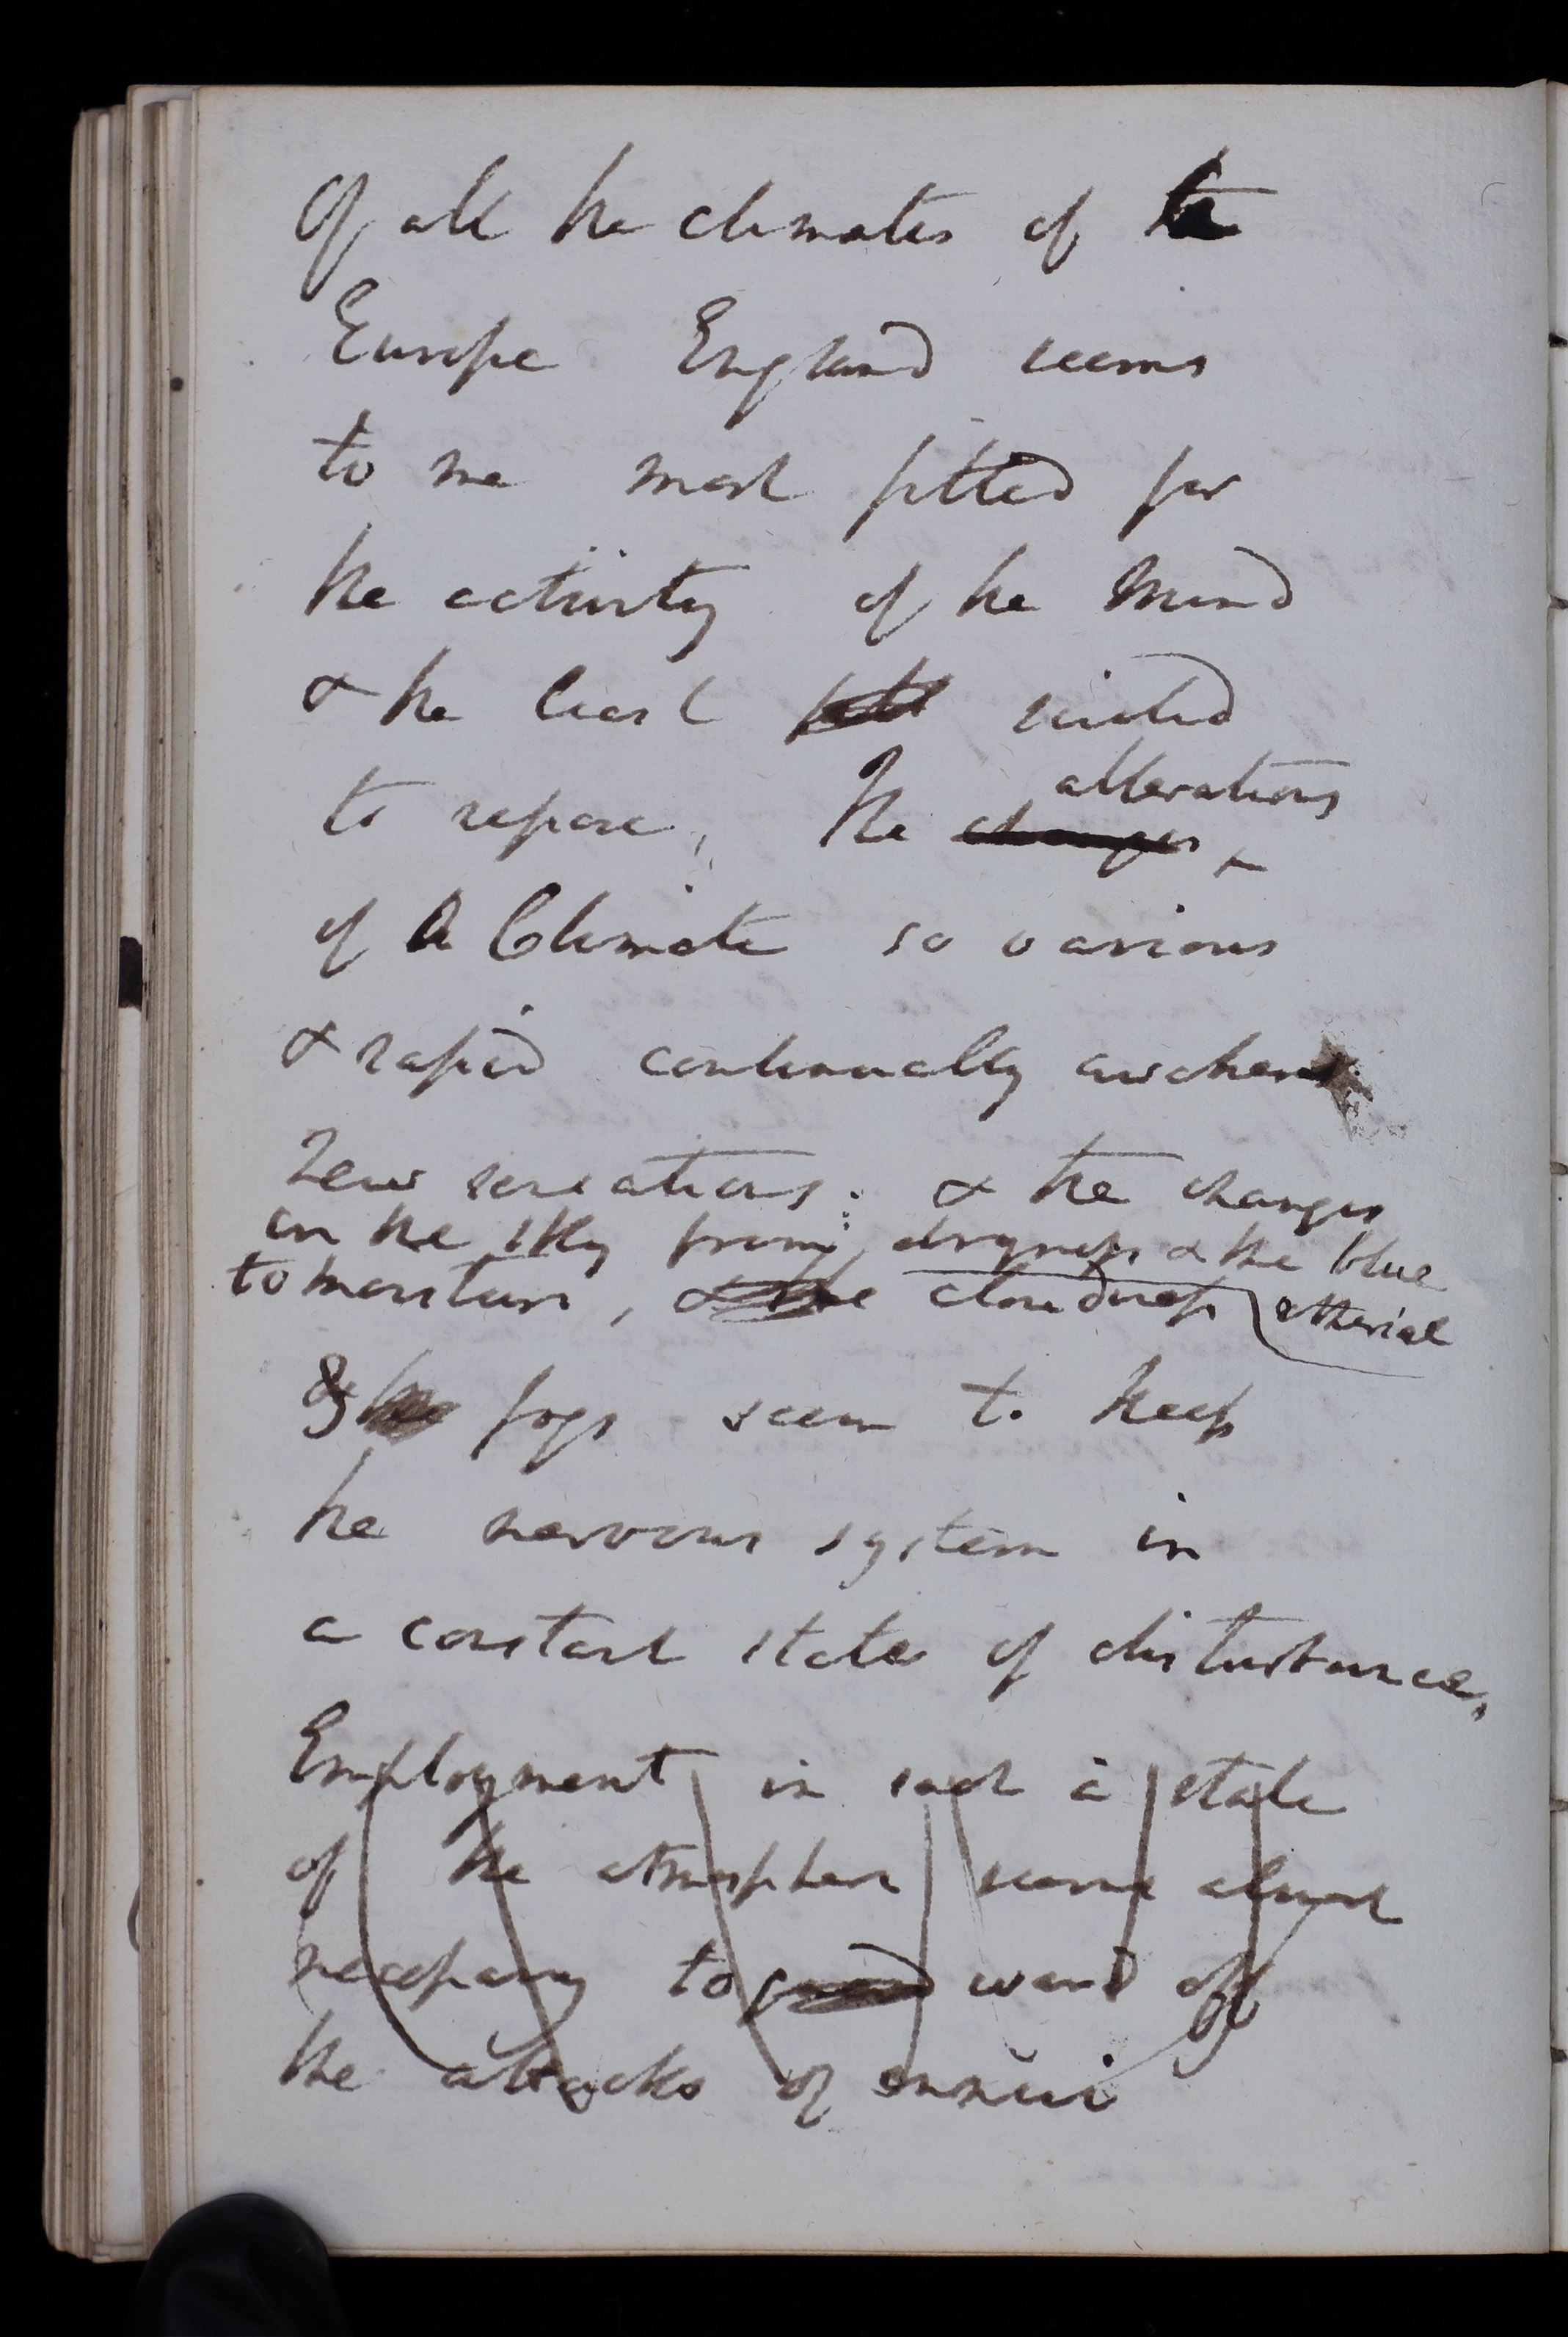 Of all the climates of the
Europe England seems
to me most fitted for
the activity of the mind
& the least suited
to repose; The changes alterations
of a Climate so various
& rapid continually awakens
new sensations: & the changes
in the sky from dryness & the blue etherial
to moisture, & the cloudiness
& the fogs seem to keep
the nervous system in
a constant state of disturbance,
Employment in such a state
of the atmosphere seems almost
necessary to guard ward off
the attacks of ennui